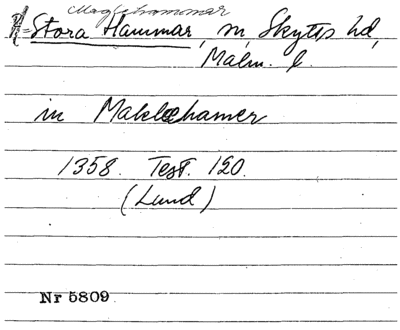 Maglehammar
Stora Hammar, sn, Skytts hd,
Malm. l.
in Maklæhamer
1358. Test. 120.
(Lund)
Nr 5809